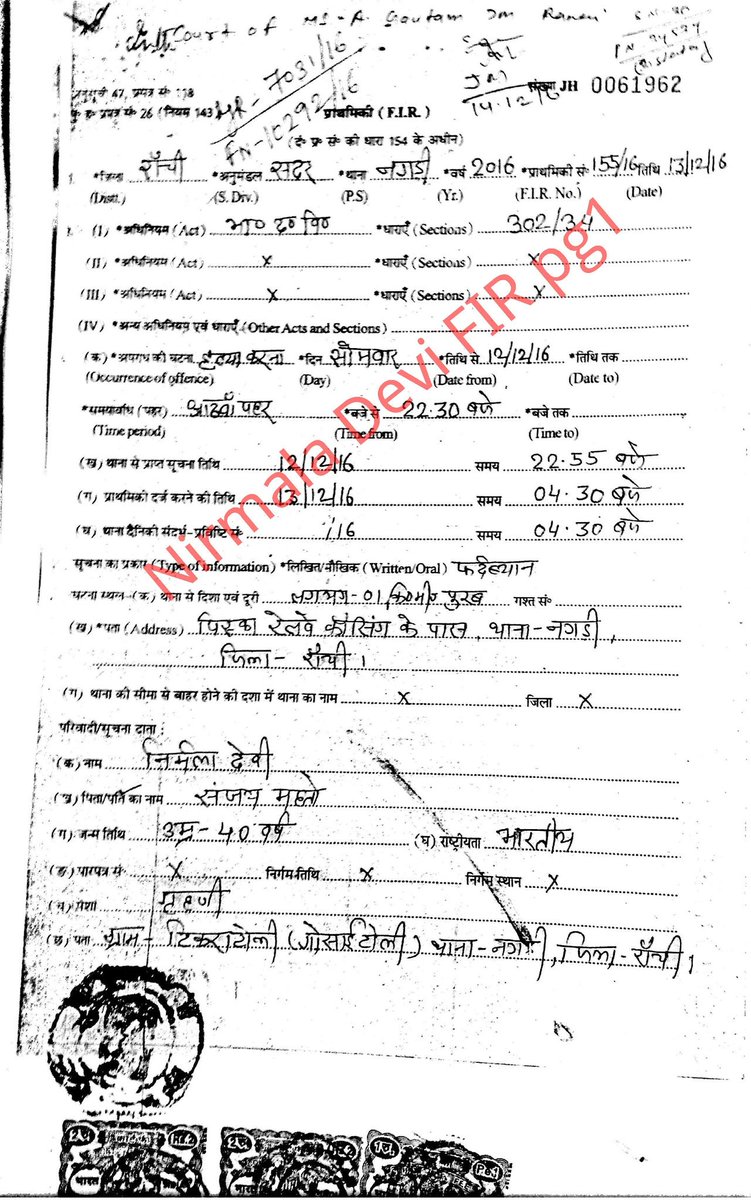 Court of Ms. A Goutam JM Ranchi
GR - 7031/16
FN-10292/16
JM
14.12/16
संख्या JH 0061962
अनुसूची 47, प्रपत्र सं॰ 118
प्रपत्र सं॰ 26 (नियम 143)
प्राथमिकी ( F.I.R. )
(दं॰ प्र॰ सं॰ की धारा 154 के अधीन)
1. *जिला राँची *अनुमंडल सदर *थाना नगड़ी *वर्ष 2016 *प्राथमिकी सं॰ 155/16 तिथि 13/12/16
(Distt.) (S. Div.) (P.S) (Yr.) (F.I.R. No.) (Date)
2. (I) *अधिनियम (Act) भा० द० वि० *धाराएँ (Sections) 302/34
(II) *अधिनियम (Act) x *धाराएँ (Sections) x
(III) *अधिनियम (Act) x *धाराएँ (Sections) x
(IV) *अन्य अधिनियम एवं धाराएँ (Other Acts and Sections)
(क) *अपराध की घटना हत्या करना *दिन सोमवार *तिथि से 12/12/16 *तिथि तक
(Occurrence of offence) (Day) (Date from) (Date to)
*समयावधि (पहर) आठवाँ पहर *बजे से 22.30 बजे *बजे तक
(Time period) (Time from) (Time to)
(ख) थाना से प्राप्त सूचना तिथि 12/12/16 समय 22.55 बजे
(ग) प्राथमिकी दर्ज करने की तिथि 13/12/16 समय 04.30 बजे
(घ) थाना दैनिकी संदर्भ-प्रविष्टि सं॰ /16 समय 04.30 बजे
सूचना का प्रकार (Type of information) *लिखित/मौखिक (Written/Oral) फर्दबयान
घटना स्थल-(क) थाना से दिशा एवं दूरी लगभग-01 कि०मी० पुरब गश्त सं॰
(ख) *पता (Address) पिस्का रेलवे क्रॉसिंग के पास, थाना-नगड़ी,
जिला - राँची।
(ग) थाना की सीमा से बाहर होने की दशा में थाना का नाम x जिला x
परिवादी/सूचना दाता :
(क) नाम निर्मला देवी
(ख) पिता/पति का नाम संजय महतो
(ग) जन्म तिथि उम्र-40 वर्ष (घ) राष्ट्रीयता भारतीय
(ङ) पारपत्र सं॰ x निर्गम तिथि x निर्गम स्थान x
(च) पेशा गृहणी
(छ) पता ग्राम- टिकराटोली (गोसाईटोली) थाना-नगड़ी, जिला-राँची।
Nirmala Devi FIR pg1